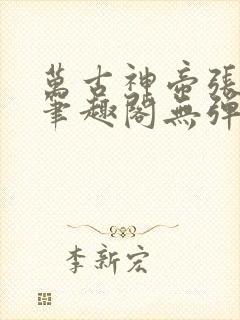 萬古神帝張
筆趣閣無彈
李新宏